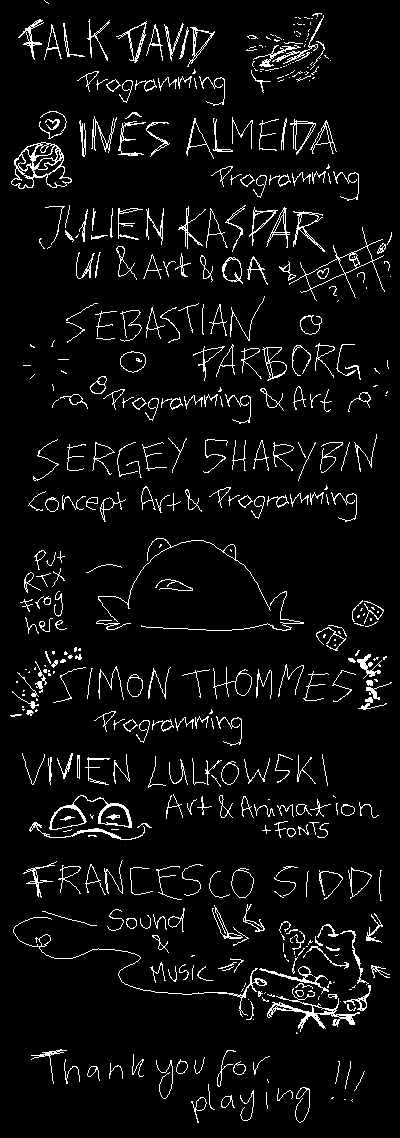 FALK DAVID
Programming
INÊS ALMEIDA
Programming
JULIEN KASPAR
UI & Art & QA
? ? ?
SEBASTIAN
PARBORG
Programming & Art
SERGEY SHARYBIN
Concept Art & Programming
Put
RTX
Frog
here
SIMON THOMMES
Programming
VIVIEN LULKOWSKI
Art & Animation
+ FONTS
FRANCESCO SIDDI
Sound
&
Music
Thank you for
playing !!!